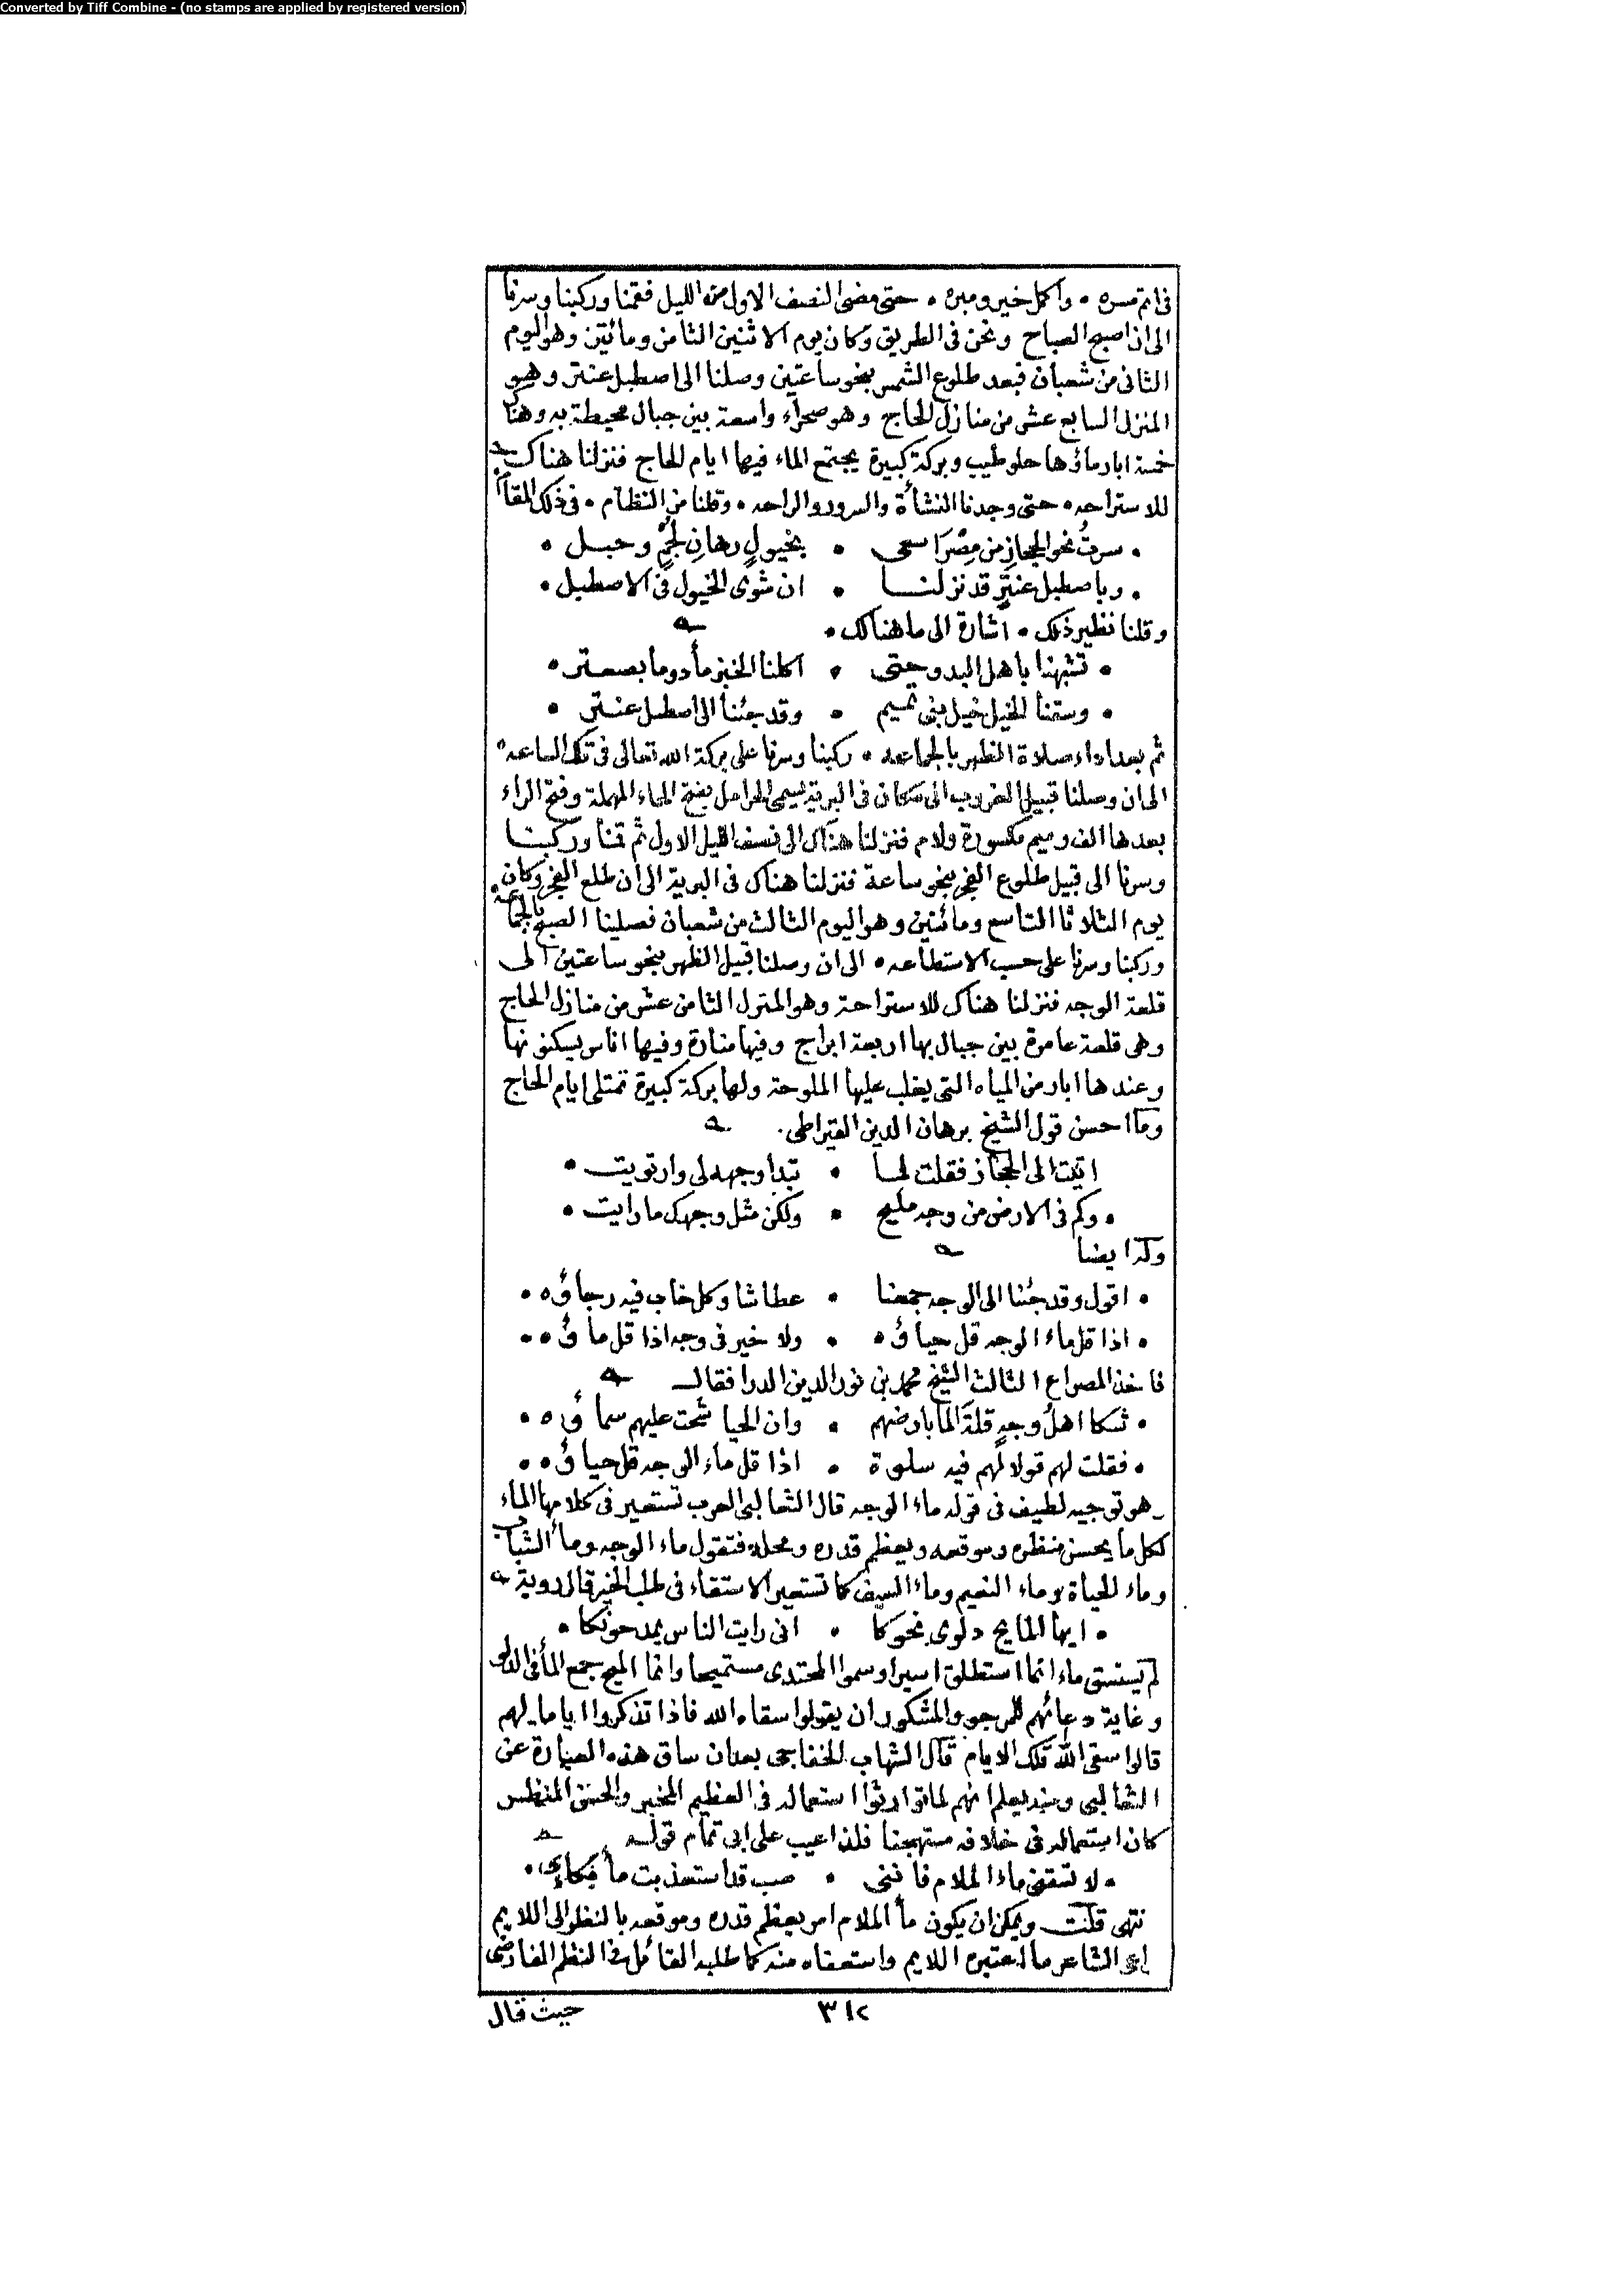 Converted by Tiff Combine - (no stamps are applied by registered version)
في اتم مسره • واكمل خير ومبره • حتى مضى النصف الاول من الليل فقمنا وركبنا وسرنا
الى ان اصبح الصباح ونحن في الطريق وكان يوم الاثنين الثامن ومائتين وهو اليوم
الثاني من شعبان فبعد طلوع الشمس بنحو ساعتين وصلنا الى اصطبل عنتر وهو
المنزل السابع عشر من منازل الحاج وهو صحراء واسعة بين جبال محيطة به وهناك
خمسة ابار ماؤها حلو طيب وبركة كبيرة يجتمع الماء فيها ايام الحاج فنزلنا هناك
للاستراحه • حتى وجدنا النشأة والسرور والراحه • وقلنا من النظام • في ذلك المقام
• سرتُ نحو الحجازِ من مِصْرَ اسعى • بخيولٍ رهانِ لجُمٍ وحبل •
• وباصطبل عنترٍ قد نزلنا • ان شوى الخيول في الاصطبل •
وقلنا نظير ذلك • اشارة الى ما هنالك •
• تشبهنا باهل البدو حتى • اكلنا الخبز مأدوما بصعتر •
• وسقنا الخيل خيل بني تميم • وقد جئنا الى اصطبل عنتر •
ثم بعد اداء صلاة الظهر بالجماعه • ركبنا وسرنا على بركة الله تعالى في تلك الساعه •
الى ان وصلنا قبيل الغروب الى مكان في البرية يسمى الحرامل بفتح الحاء المهملة وفتح الراء
بعدها الف وميم مكسورة ولام فنزلنا هناك الى نصف الليل الاول ثم قمنا وركبنا
وسرنا الى قبيل طلوع الفجر بنحو ساعة فنزلنا هناك في البرية الى ان طلع الفجر وكان
يوم الثلاثا التاسع ومائتين وهو اليوم الثالث من شعبان فصلينا الصبح بالجماعة
وركبنا وسرنا على حسب الاستطاعه • الى ان وصلنا قبيل الظهر بنحو ساعتين الى
قلعة الوجه فنزلنا هناك للاستراحة وهو المنزل الثامن عشر من منازل الحاج
وهي قلعة عامرة بين جبال بها اربعة ابراج وفيها منارة وفيها اناس يسكنونها
وعندها ابار من المياه التي يغلب عليها الملوحة ولها بركة كبيرة تمتلي ايام الحاج
وما احسن قول الشيخ برهان الدين القيراطي.
اتيت الى الحجاز فقلت لما • تبدا وجهه لي وارتويت •
• وكم في الارض من وجه مليح • ولكن مثل وجهك ما رايت •
وله ايضا
• اقول وقد جئنا الى الوجه جمعنا • عطاشا وكل خاب فيه رجاؤه •
• اذا قل ماء الوجه قل حياؤه • ولا خير في وجه اذا قل ماؤه •
فاخذ المصراع الثالث الشيخ محمد بن نور الدين الدرا فقال
• شكا اهلُ وجهٍ قلةَ الما بارضهم • وان الحيا شحت عليهم سماؤه •
• فقلت لهم قولا لهم فيه سلوة • اذا قل ماء الوجه قل حياؤه •
وهو توجيه لطيف في قوله ماء الوجه قال الثعالبي العرب تستعير في كلامها الماء
لكل ما يحسن منظره وموقعه ويعظم قدره ومحله فتقول ماء الوجه وماء الشباب
وماء الحياة وماء النعيم وماء السيف كما تستعير الاستقاء في طلب الخير قال روبة
• ايها المايح دلوى نحوكا • اني رايت الناس يمدحونكا •
لم يستسق ماء انما استطلق اسيرا وسموا المجتدى مستميحا وانما الميح جمع الماء في الدلو
وغاية دعائهم للمرجو والمشكور ان يقولوا سقاه الله فاذا تذكروا اياما لهم
قالوا سقى الله تلك الايام قال الشهاب الخفاجي بعد ان ساق هذه العبارة عن
الثعالبي ومنه يعلم انهم لما توارثوا استعماله في العظيم المخبر والحسن المنظر
كان استعماله في خلافه مستهجنا فلذا عيب على ابي تمام قوله
• لا تسقني ماء الملام فانني • صب قد استعذبت ماء بكائي •
نتهى قلت ويمكن ان يكون ماء الملام امر يعظم قدره وموقعه بالنظر الى اللايم
الشاعر ما اعتبره اللايم واستعفاه منه كما طلبه القائل في النظم الفارضي
٣١٢
حيث قال